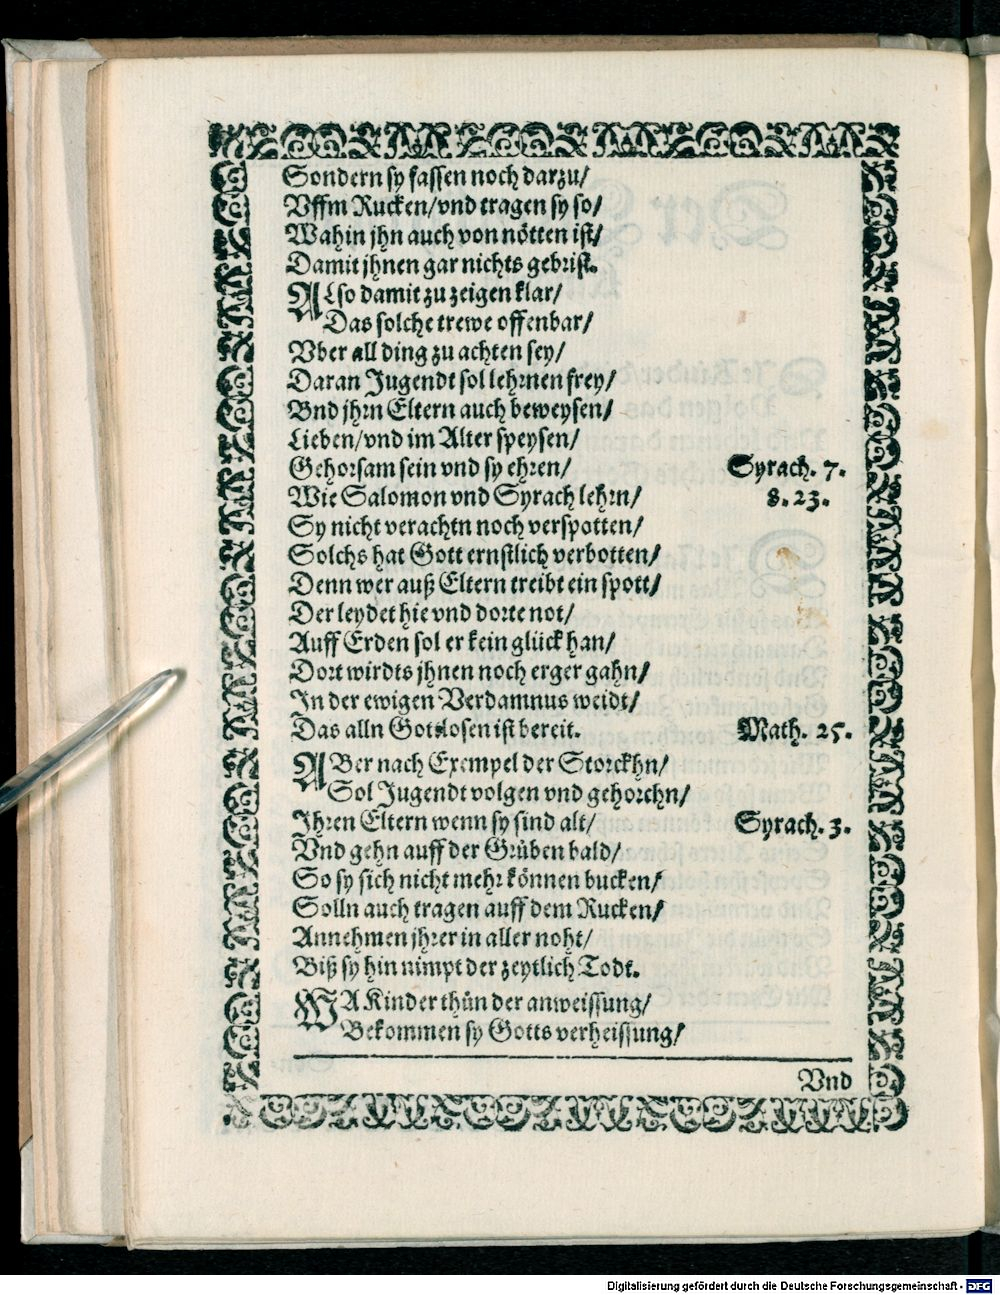 Sondern sy fassen noch darzu/
Vffm Rucken/vnd tragen sy so/
Wahin jhn auch von nötten ist/
Damit jhnen gar nichts gebrist.
ALso damit zu zeigen klar/
Das solche trewe offenbar/
Vber all ding zu achten sey/
Daran Jugendt sol lehrnen frey/
Vnd jhrn Eltern auch beweysen/
Lieben/vnd im Alter speysen/
Gehorsam sein vnd sy ehren/ Syrach. 7.
Wie Salomon vnd Syrach lehrn/ 8. 23.
Sy nicht verachtn noch verspotten/
Solchs hat Gott ernstlich verbotten/
Denn wer auß Eltern treibt ein spott/
Der leydet hie vnd dorte not/
Auff Erden sol er kein glück han/
Dort wirdts jhnen noch erger gahn/
In der ewigen Verdamnus weidt/
Das alln Gotlosen ist bereit. Math. 25.
ABer nach Exempel der Storckhn/
Sol Jugendt volgen vnd gehorchn/
Ihren Eltern wenn sy sind alt/ Syrach. 3.
Vnd gehn auff der Grüben bald/
So sy sich nicht mehr können bucken/
Solln auch tragen auff dem Rucken/
Annehmen jhrer in aller noht/
Biß sy hin nimpt der zeytlich Todt.
WA Kinder thün der anweissung/
Bekommen sy Gotts verheissung/
Vnd
Digitalisierung gefördert durch die Deutsche Forschungsgemeinschaft - DFG